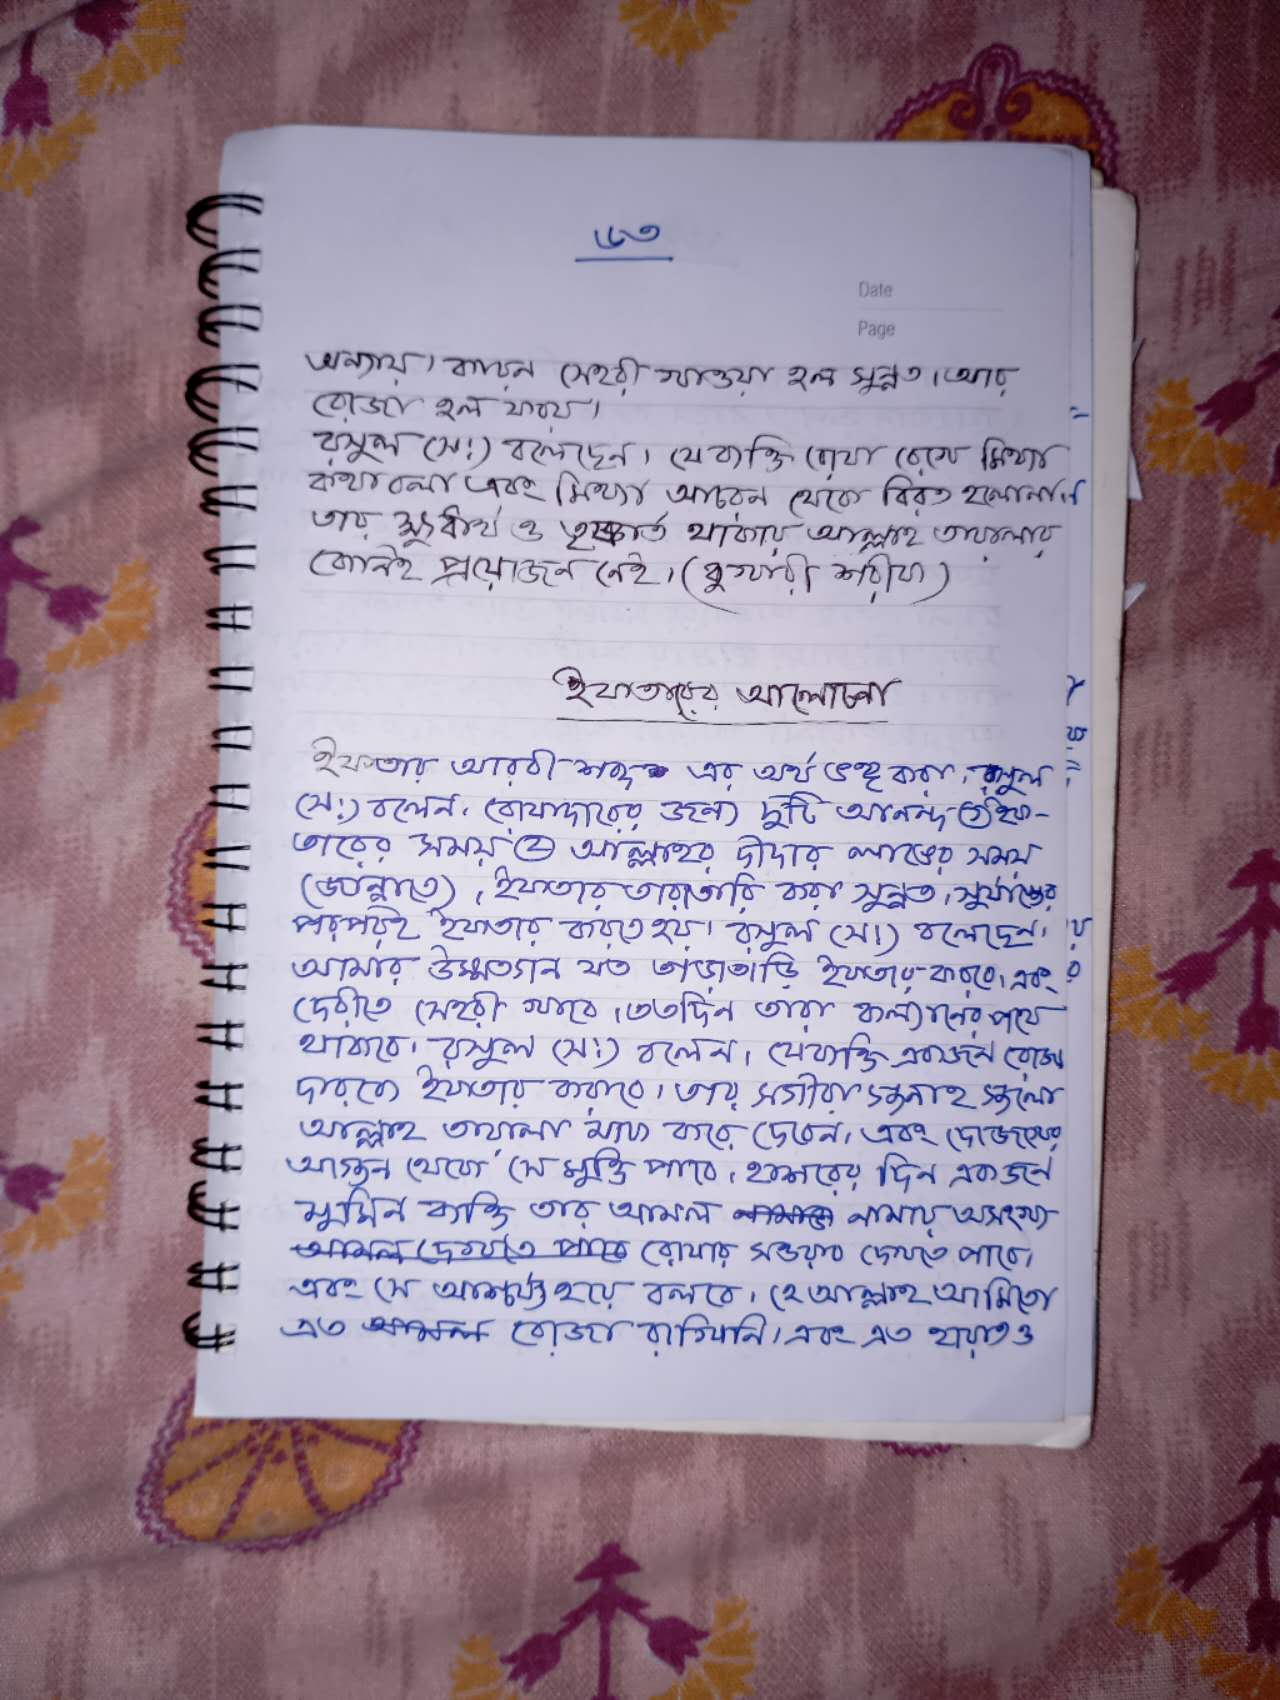 ৬৩
Date
Page
অন্যায়। কারন সেহরী খাওয়া হল সুন্নত। আর
রোজা হল ফরয।
রসুল (সঃ) বলেছেন। যে ব্যক্তি রোযা রেখে মিথ্যা
কথা বলা এবং মিথ্যা আচরন থেকে বিরত হলোনা।
তার ক্ষুধার্থ ও তৃষ্ণার্ত থাকায় আল্লাহ তায়ালার
কোনই প্রয়োজন নেই। (বুখারী শরীফ)
ইফতারের আলোচনা
ইফতার আরবী শব্দ এর অর্থ ভঙ্গ করা। রসুল
(সঃ) বলেন। রোযাদারের জন্য দুটি আনন্দ ১ ইফ-
তারের সময় ২ আল্লাহর দীদার লাভের সময়
(জান্নাতে)। ইফতার তারাতারি করা সুন্নত। সুর্যাস্তের
পরপরই ইফতার করতে হয়। রসুল (সঃ) বলেছেন।
আমার উম্মতগন যত তাড়াতাড়ি ইফতার করবে। এবং
দেরীতে সেহরী খাবে। ততদিন তারা কল্যানের পথে
থাকবে। রসুল (সঃ) বলেন। যে ব্যক্তি একজন রোজা
দারকে ইফতার করাবে। তার সগীরা গুনাহ গুলো
আল্লাহ তায়ালা মাফ করে দেবেন। এবং দোজখের
আগুন থেকে সে মুক্তি পাবে। হাশরের দিন একজন
মুমিন ব্যক্তি তার আমল নামায় অসংখ্য
আমল দেখতে পাবে রোযার সওয়াব দেখতে পাবে।
এবং সে আশ্চর্য্য হয়ে বলবে। হে আল্লাহ আমিতো
এত আমল রোজা রাখিনি। এবং এত হায়াত ও